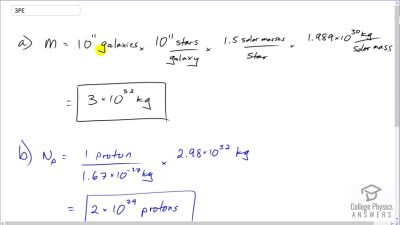 3PE
a) M = 10¹¹ galaxies × 10¹¹ stars/galaxy × 1.5 solar masses/star × 1.989×10³⁰ kg/solar mass
= 3×10⁵² kg
b) Nₚ = 1 proton/1.67×10⁻²⁷ kg × 2.98×10⁵² kg
= 2×10⁷⁹ protons
College Physics
ANSWERS